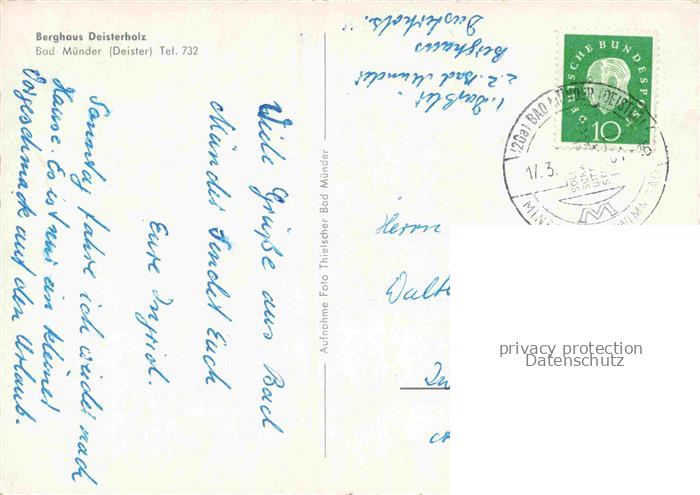 Berghaus Deisterholz
Bad Münder (Deister) Tel. 732
Viele Grüße aus Bad
Münder sendet Euch
Eure Ingrid.
Sonntag fahre ich wieder nach
Hause. Es ist nur ein kleiner
Vorgeschmack auf den Urlaub.
z. Z. Bad Münder
Berghaus
Deisterholz.
Aufnahme Foto Thielscher Bad Münder
DEUTSCHE BUNDESPOST
10
(20a) BAD MÜNDER (DEISTER)
17.3.
Herrn
privacy protection
Datenschutz